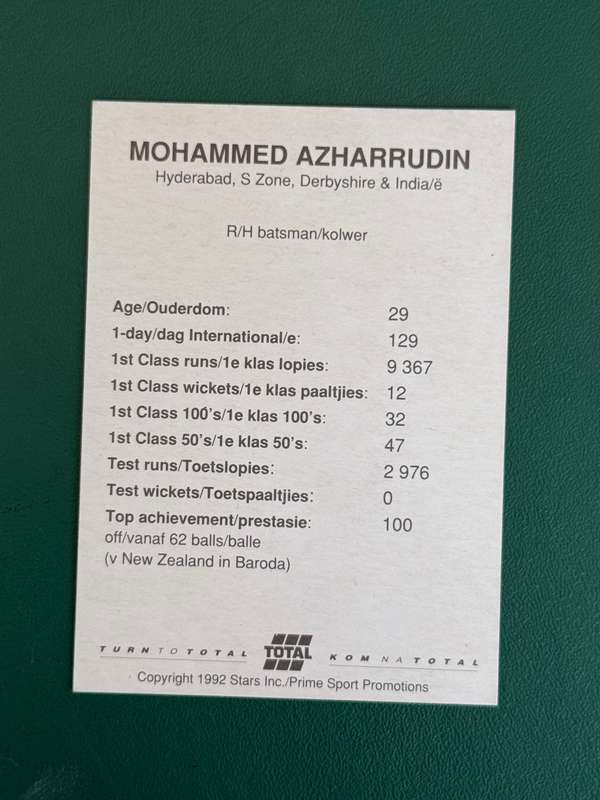 MOHAMMED AZHARRUDIN
Hyderabad, S Zone, Derbyshire & India/ë
R/H batsman/kolwer
Age/Ouderdom: 29
1-day/dag International/e: 129
1st Class runs/1e klas lopies: 9 367
1st Class wickets/1e klas paaltjies: 12
1st Class 100's/1e klas 100's: 32
1st Class 50's/1e klas 50's: 47
Test runs/Toetslopies: 2 976
Test wickets/Toetspaaltjies: 0
Top achievement/prestasie: 100
off/vanaf 62 balls/balle
(v New Zealand in Baroda)
TURN TO TOTAL TOTAL KOM NA TOTAL
Copyright 1992 Stars Inc./Prime Sport Promotions